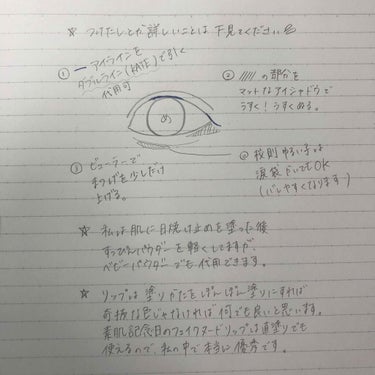 ☆ つけたしとか詳しいことは 下見てください
① ー アイラインを
ダブルライン(KATE)で引く
代用可
② //// の部分を
マットなアイシャドウで
うすく!うすくぬる。
め
③ ビューラーで
まつげを少しだけ
上げる。
@ 校則ゆるい子は
涙袋かいてもOK
(バレやすくなります)
☆ 私は肌に日焼け止めを塗った後
すっぴんパウダーを軽くしてますが、
ベビーパウダーでも代用できます。
☆ リップは塗りかたをぽんぽん塗りにすれば
奇抜な色じゃなければ何でも良いと思います。
素肌記念日のフェイクヌードリップは直塗りでも
使えるので、私の中で本当に優秀です。